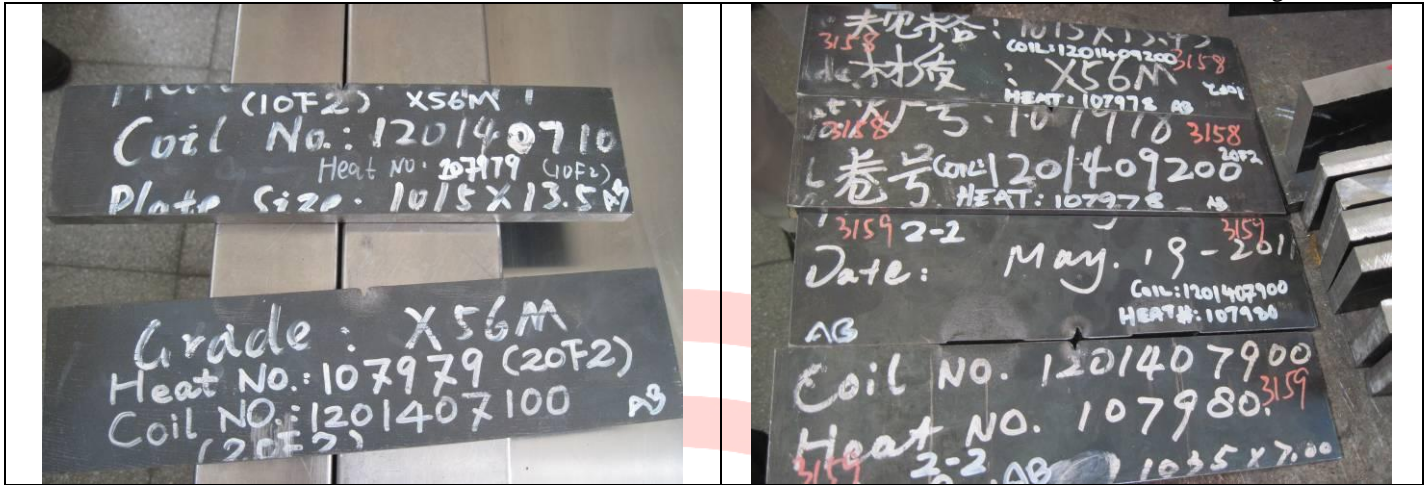 (10F2) X56M
Coil No.: 120140710
Heat NO. 107979 (10F2)
Plate Size. 1015X13.5 AB
Grade: X56M
Heat NO.: 107979 (20F2)
Coil NO.: 1201407100 AB
(20F2)
规格: 1015X13.45
3158 COIL: 1201409200 3158
材质: X56M
HEAT: 107978 AB
3158 号. 107978 3158
卷号 COIL: 1201409200 20F2
HEAT: 107978 AB
3159 2-2 3159
Date: May. 19-2011
COIL: 1201407900
HEAT#: 107980
AB
Coil NO. 1201407900
Heat NO. 107980. 3159
3159 2-2 AB 1035X7.00